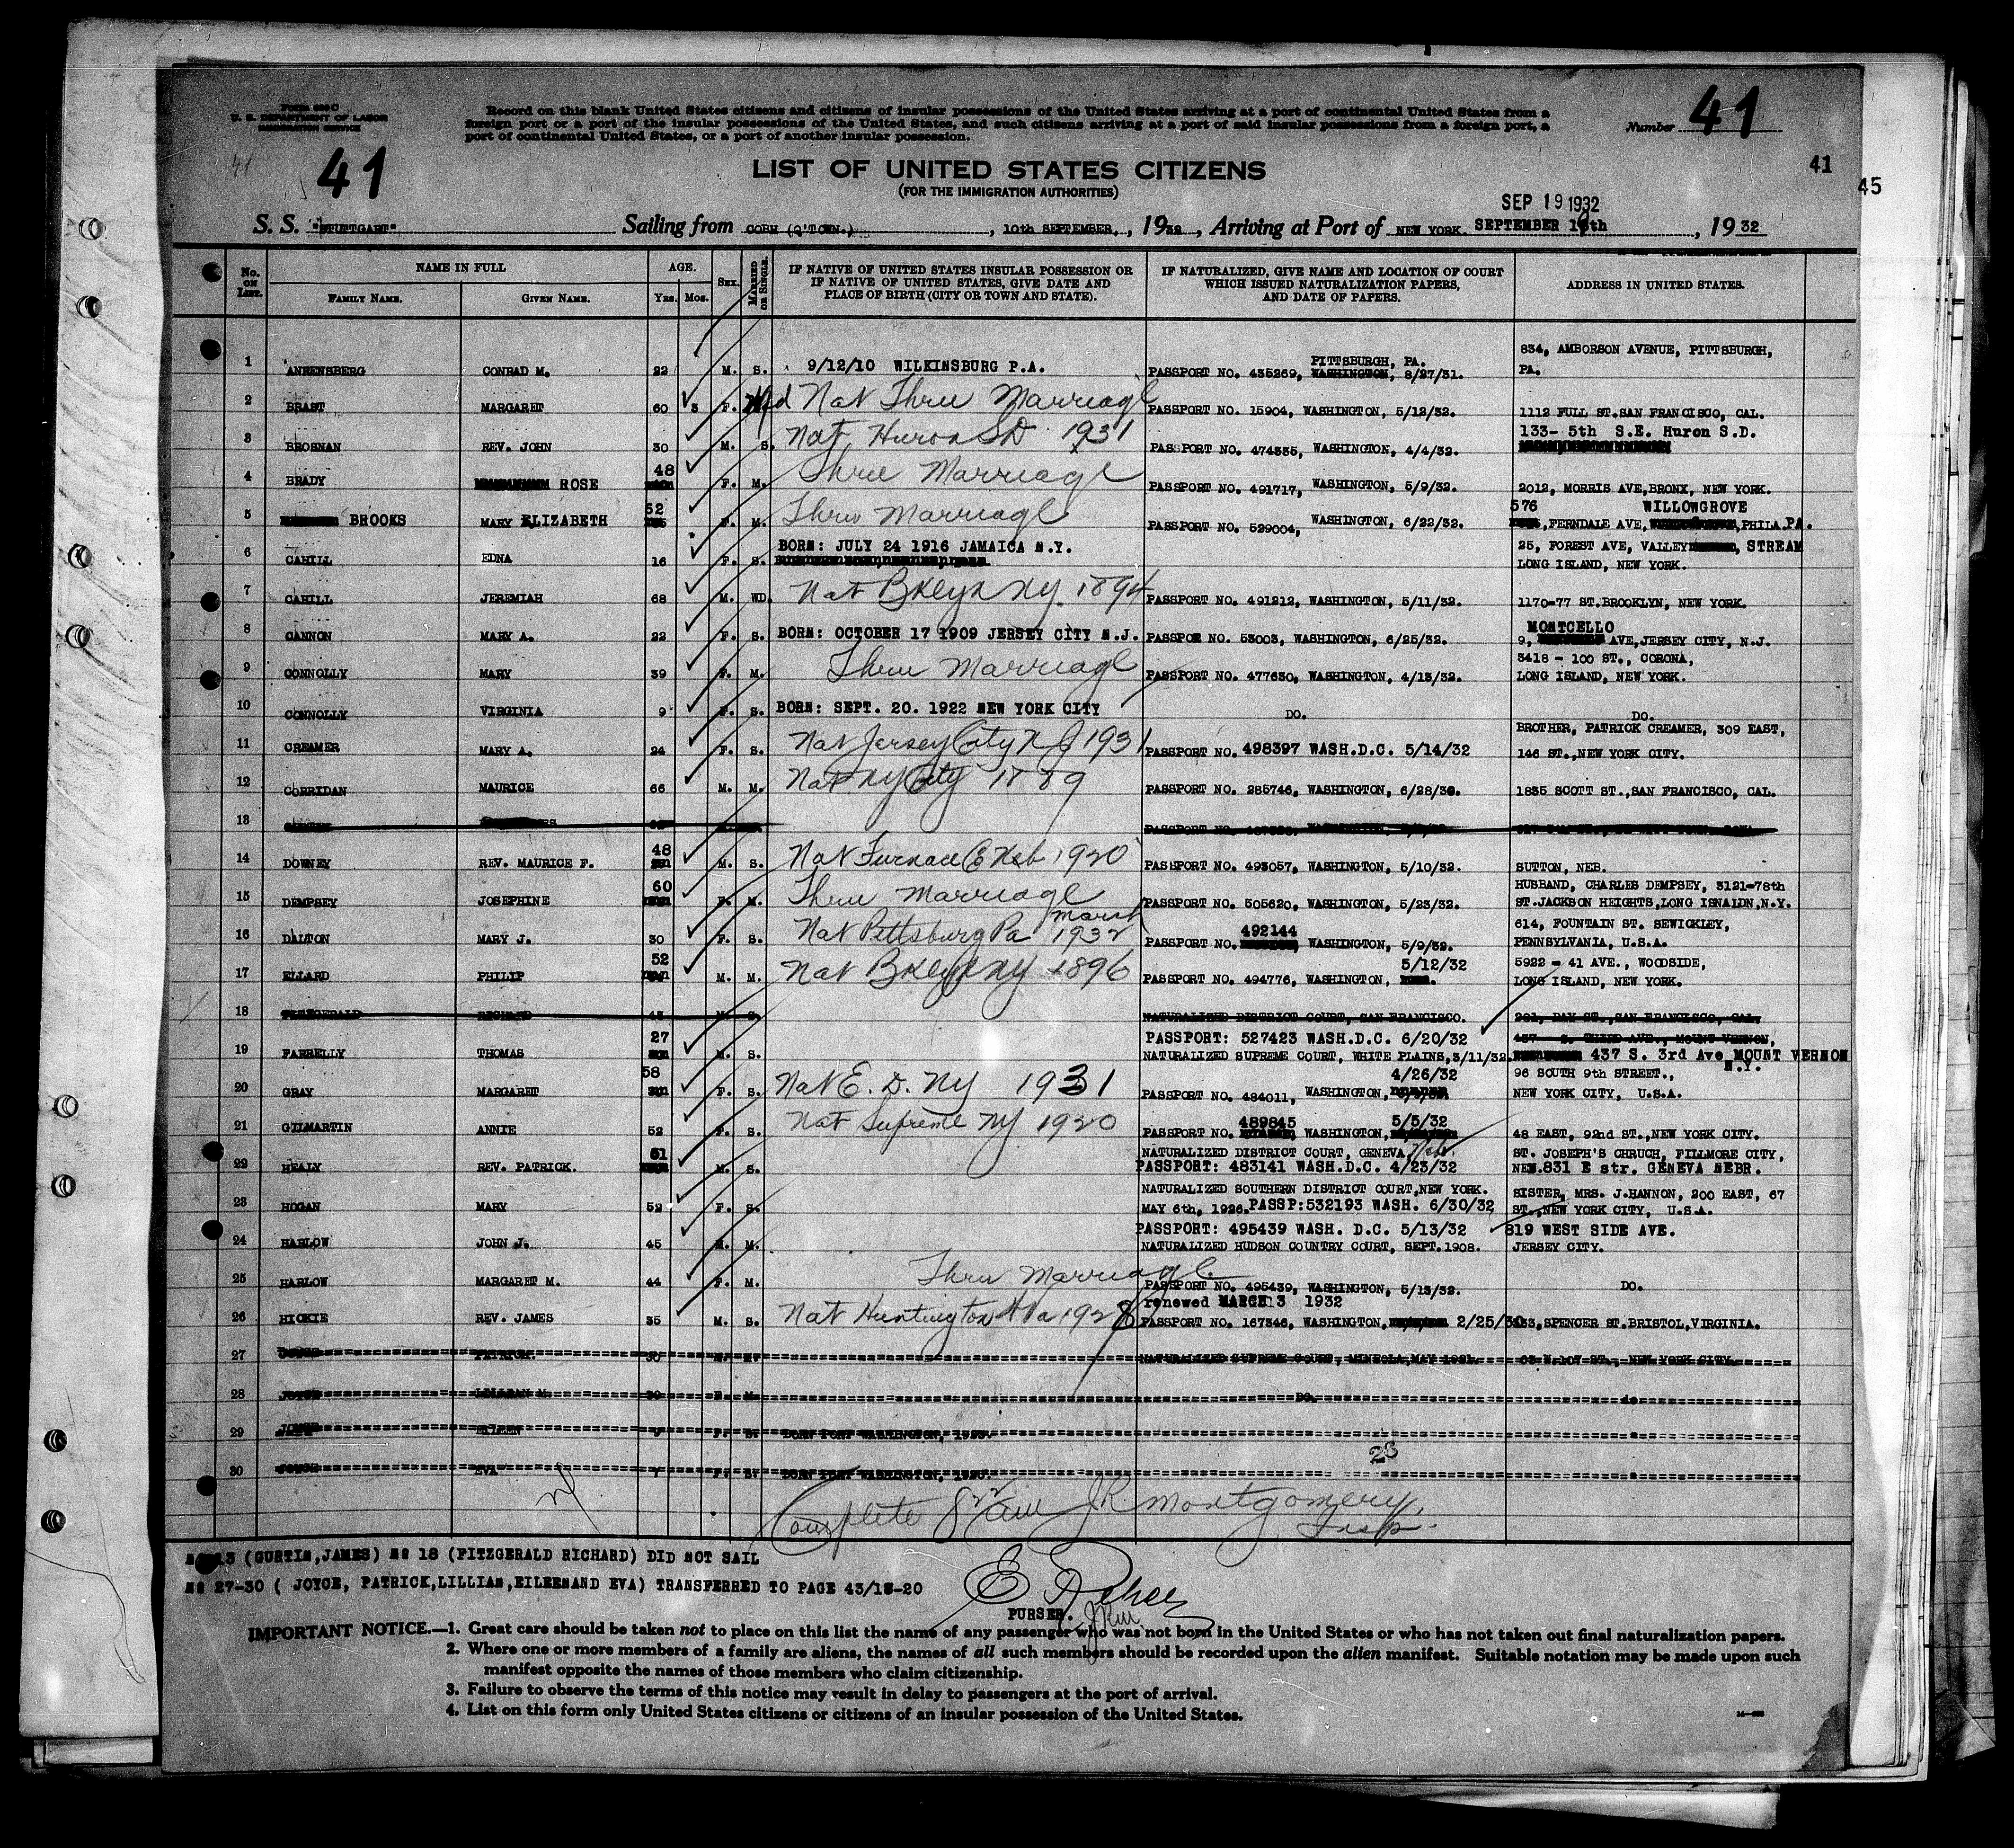 Form 630 C
U. S. DEPARTMENT OF LABOR
IMMIGRATION SERVICE
Record on this blank United States citizens and citizens of insular possessions of the United States arriving at a port of continental United States from a
foreign port or a port of the insular possessions of the United States, and such citizens arriving at a port of said insular possessions from a foreign port, a
port of continental United States, or a port of another insular possession.
Number 41
41
41
41
45
LIST OF UNITED STATES CITIZENS
(FOR THE IMMIGRATION AUTHORITIES)
SEP 19 1932
S. S. "STUTTGART" Sailing from COBH (Q'TOWN.), 10th SEPTEMBER, 1932, Arriving at Port of NEW YORK. SEPTEMBER 19th, 1932
No. ON LIST. NAME IN FULL AGE. SEX. MARRIED OR SINGLE. IF NATIVE OF UNITED STATES INSULAR POSSESSION OR IF NATIVE OF UNITED STATES, GIVE DATE AND PLACE OF BIRTH (CITY OR TOWN AND STATE). IF NATURALIZED, GIVE NAME AND LOCATION OF COURT WHICH ISSUED NATURALIZATION PAPERS, AND DATE OF PAPERS. ADDRESS IN UNITED STATES.
FAMILY NAME. GIVEN NAME. YRS. MOS.
1 AHRENSBERG CONRAD M. 22 M. S. 9/12/10 WILKINSBURG P.A. PASSPORT NO. 435269, WASHINGTON, PITTSBURGH, PA. 8/27/31. 834, AMBORSON AVENUE, PITTSBURGH, PA.
2 BRAST MARGARET 60 3 F. Wd Nat Thru Marriage PASSPORT NO. 15904, WASHINGTON, 5/12/32. 1112 FULL ST.SAN FRANCISCO, CAL.
3 BROSNAN REV. JOHN 30 M. S. Nat Huron SD 1931 PASSPORT NO. 474335, WASHINGTON, 4/4/32. 133- 5th S.E. Huron S.D.
4 BRADY ROSE 48 F. M. Thru Marriage PASSPORT NO. 491717, WASHINGTON, 5/9/32. 2012, MORRIS AVE,BRONX, NEW YORK.
5 BROOKS MARY ELIZABETH 52 F. M. Thru Marriage PASSPORT NO. 529004, WASHINGTON, 6/22/32. 576 ,FERNDALE AVE, WILLOWGROVE ,PHILA PA.
6 CAHILL EDNA 16 F. S. BORN: JULY 24 1916 JAMAICA N.Y. 25, FOREST AVE, VALLEY , STREAM
LONG ISLAND, NEW YORK.
7 CAHILL JEREMIAH 68 M. WD. Nat Bklyn NY. 1894 PASSPORT NO. 491212, WASHINGTON, 5/11/32. 1170-77 ST.BROOKLYN, NEW YORK.
8 CANNON MARY A. 22 F. S. BORN: OCTOBER 17 1909 JERSEY CITY N.J. PASSPOR NO. 53003, WASHINGTON, 6/25/32. 9, MONTCELLO AVE,JERSEY CITY, N.J.
9 CONNOLLY MARY 39 F. M. Thru Marriage PASSPORT NO. 477630, WASHINGTON, 4/13/32. 3418 - 100 ST., CORONA,
LONG ISLAND, NEW YORK.
10 CONNOLLY VIRGINIA 9 F. S. BORN: SEPT. 20. 1922 NEW YORK CITY DO. DO.
11 CREAMER MARY A. 24 F. S. Nat Jersey City N J 1931 PASSPORT NO. 498397 WASH.D.C. 5/14/32 BROTHER, PATRICK CREAMER, 309 EAST,
146 ST.,NEW YORK CITY.
12 CORRIDAN MAURICE 66 M. M. Nat NY City 1889 PASSPORT NO. 285746, WASHINGTON, 6/28/30. 1835 SCOTT ST.,SAN FRANCISCO, CAL.
13
14 DOWNEY REV. MAURICE F. 48 M. S. Nat Furnace Co Neb 1920 PASSPORT NO. 493057, WASHINGTON, 5/10/32. SUTTON, NEB.
15 DEMPSEY JOSEPHINE 60 F. M. Thru Marriage PASSPORT NO. 505620, WASHINGTON, 5/23/32. HUSBAND, CHARLES DEMPSEY, 3121-78th
ST.JACKSON HEIGHTS,LONG ISNALDN,N.Y.
16 DALTON MARY J. 30 F. S. Nat Pittsburg Pa March 1932 PASSPORT NO. 492144 WASHINGTON, 5/9/32. 614, FOUNTAIN ST. SEWICKLEY,
PENNSYLVANIA, U.S.A.
17 ELLARD PHILIP 52 M. M. Nat Bklyn NY 1896 PASSPORT NO. 494776, WASHINGTON, 5/12/32 5922 - 41 AVE., WOODSIDE,
LONG ISLAND, NEW YORK.
18 FITZGERALD RICHARD 43 M. S. NATURALIZED DISTRICT COURT, SAN FRANCISCO. 201, DAY ST.,SAN FRANCISCO, CAL.
19 FARRELLY THOMAS 27 M. S. PASSPORT: 527423 WASH.D.C. 6/20/32
NATURALIZED SUPREME COURT, WHITE PLAINS,3/11/32. 437 S. THIRD AVE., MOUNT VERNON,
437 S. 3rd Ave MOUNT VERNON N.Y.
20 GRAY MARGARET 58 F. S. Nat E. D. NY 1931 PASSPORT NO. 484011, WASHINGTON, 4/26/32 96 SOUTH 9th STREET.,
NEW YORK CITY, U.S.A.
21 GILMARTIN ANNIE 52 F. S. Nat Supreme NY 1920 PASSPORT NO. 489845 WASHINGTON, 5/5/32 48 EAST, 92nd ST.,NEW YORK CITY.
22 HEALY REV. PATRICK. 51 M. S. NATURALIZED DISTRICT COURT, GENEVA Neb.
PASSPORT: 483141 WASH.D.C. 4/23/32 ST. JOSEPH'S CHRUCH, FILLMORE CITY,
NEB.831 E str. GENEVA NEBR.
23 HOGAN MARY 52 F. S. NATURALIZED SOUTHERN DISTRICT COURT,NEW YORK.
MAY 6th, 1926.PASSP:532193 WASH. 6/30/32 SISTER, MRS. J.HANNON, 200 EAST, 67
ST.,NEW YORK CITY, U.S.A.
24 HARLOW JOHN J. 45 M. M. PASSPORT: 495439 WASH. D.C. 5/13/32
NATURALIZED HUDSON COUNTRY COURT, SEPT.1908. 819 WEST SIDE AVE.
JERSEY CITY.
25 HARLOW MARGARET M. 44 F. M. Thru Marriage PASSPORT NO. 495439, WASHINGTON, 5/13/32. DO.
26 HICKIE REV. JAMES 35 M. S. Nat Huntington W Va 1928 renewed MARCH 3 1932
PASSPORT NO. 167346, WASHINGTON, 2/25/30 ,SPENCER ST.BRISTOL,VIRGINIA.
27 JOYCE PATRICK. 30 M. M. NATURALIZED SUPREME COURT, MINEOLA,MAY 1921. 63 W.107 ST., NEW YORK CITY
28 JOYCE LILLIAN M. F. M. DO. do
29 JOYCE EILEEN F. S. BORN PORT WASHINGTON,
30 JOYCE EVA 7 F. S. BORN PORT WASHINGTON,
23
Complete Exam J.R. Montgomery,
Insp.
No 13 (GURTIN,JAMES) No 18 (FITZGERALD RICHARD) DID NOT SAIL
No 27-30 ( JOYCE, PATRICK,LILLIAN,EILEENAND EVA) TRANSFERRED TO PAGE 43/18-20
PURSER.
IMPORTANT NOTICE.—1. Great care should be taken not to place on this list the name of any passenger who was not born in the United States or who has not taken out final naturalization papers.
2. Where one or more members of a family are aliens, the names of all such members should be recorded upon the alien manifest. Suitable notation may be made upon such
manifest opposite the names of those members who claim citizenship.
3. Failure to observe the terms of this notice may result in delay to passengers at the port of arrival.
4. List on this form only United States citizens or citizens of an insular possession of the United States.